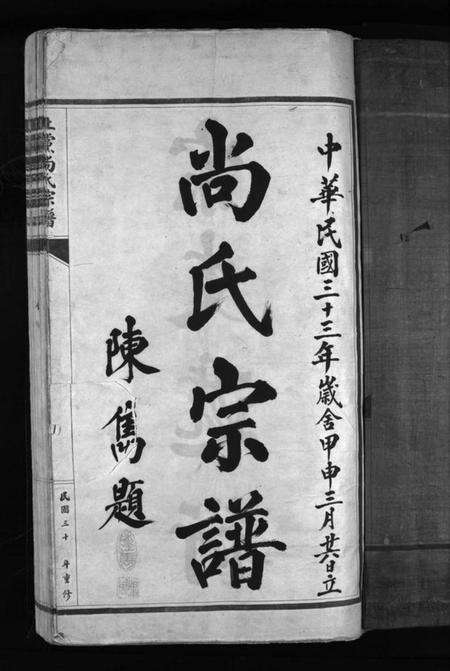 中華民國三十三年歲舍甲申三月廿六日立
尚氏宗譜
陳雋題
黨尚氏宗譜
民國三十 年重修